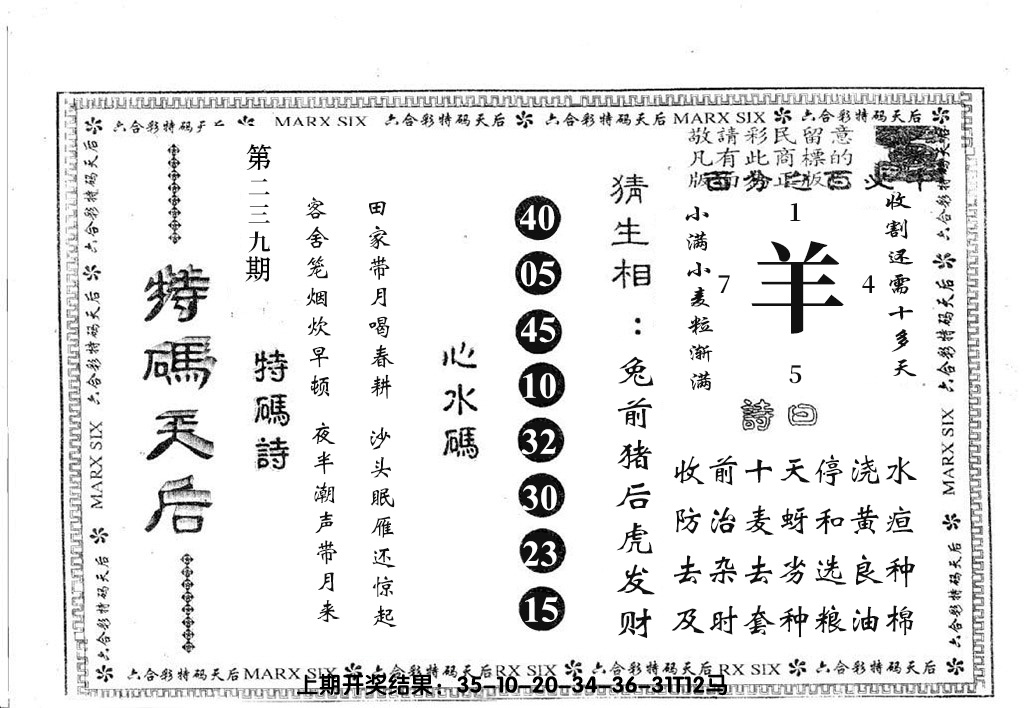 六合彩特码天后 MARX SIX 六合彩特码天后 六合彩特码天后 MARX SIX 六合彩特码天后
敬請彩民留意
凡有此商標的
版面为正版
第二三九期
特碼天后
特碼詩
田家带月喝春耕 沙头眠雁还惊起
客舍笼烟炊早顿 夜半潮声带月来
心水碼
40
05
45
10
32
30
23
15
猜生相：兔前猪后虎发财
收割还需十多天
小满小麦粒渐满
1
7
羊
4
5
詩曰
收前十天停浇水
防治麦蚜和黄疸
去杂去劣选良种
及时套种粮油棉
六合彩特码天后
MARX SIX
六合彩特码天后
六合彩特码天后
六合彩特码天后
六合彩特码天后
六合彩特码天后
MARX SIX
六合彩特码天后
六合彩特码天后 MARX SIX 六合彩特码天后 RX SIX 六合彩特码天后 RX SIX 六合彩特码天后
上期开奖结果：35-10-20-34-36-31T12马